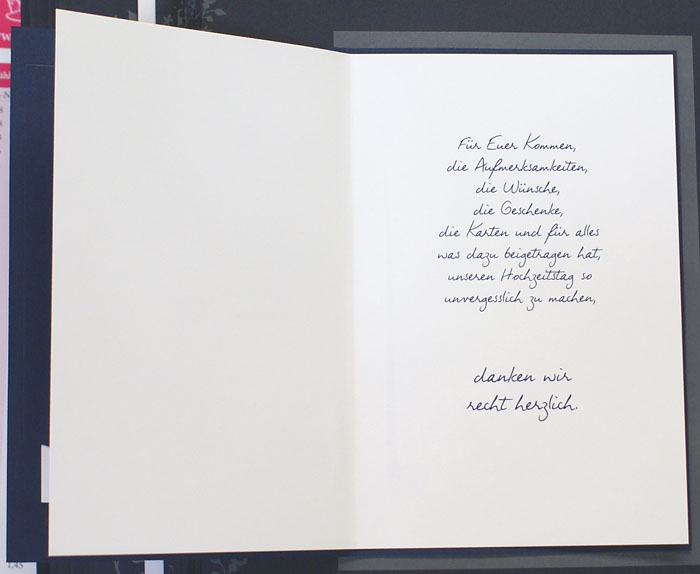 Für Euer Kommen,
die Aufmerksamkeiten,
die Wünsche,
die Geschenke,
die Karten und für alles
was dazu beigetragen hat,
unseren Hochzeitstag so
unvergesslich zu machen,
danken wir
recht herzlich.
1,45